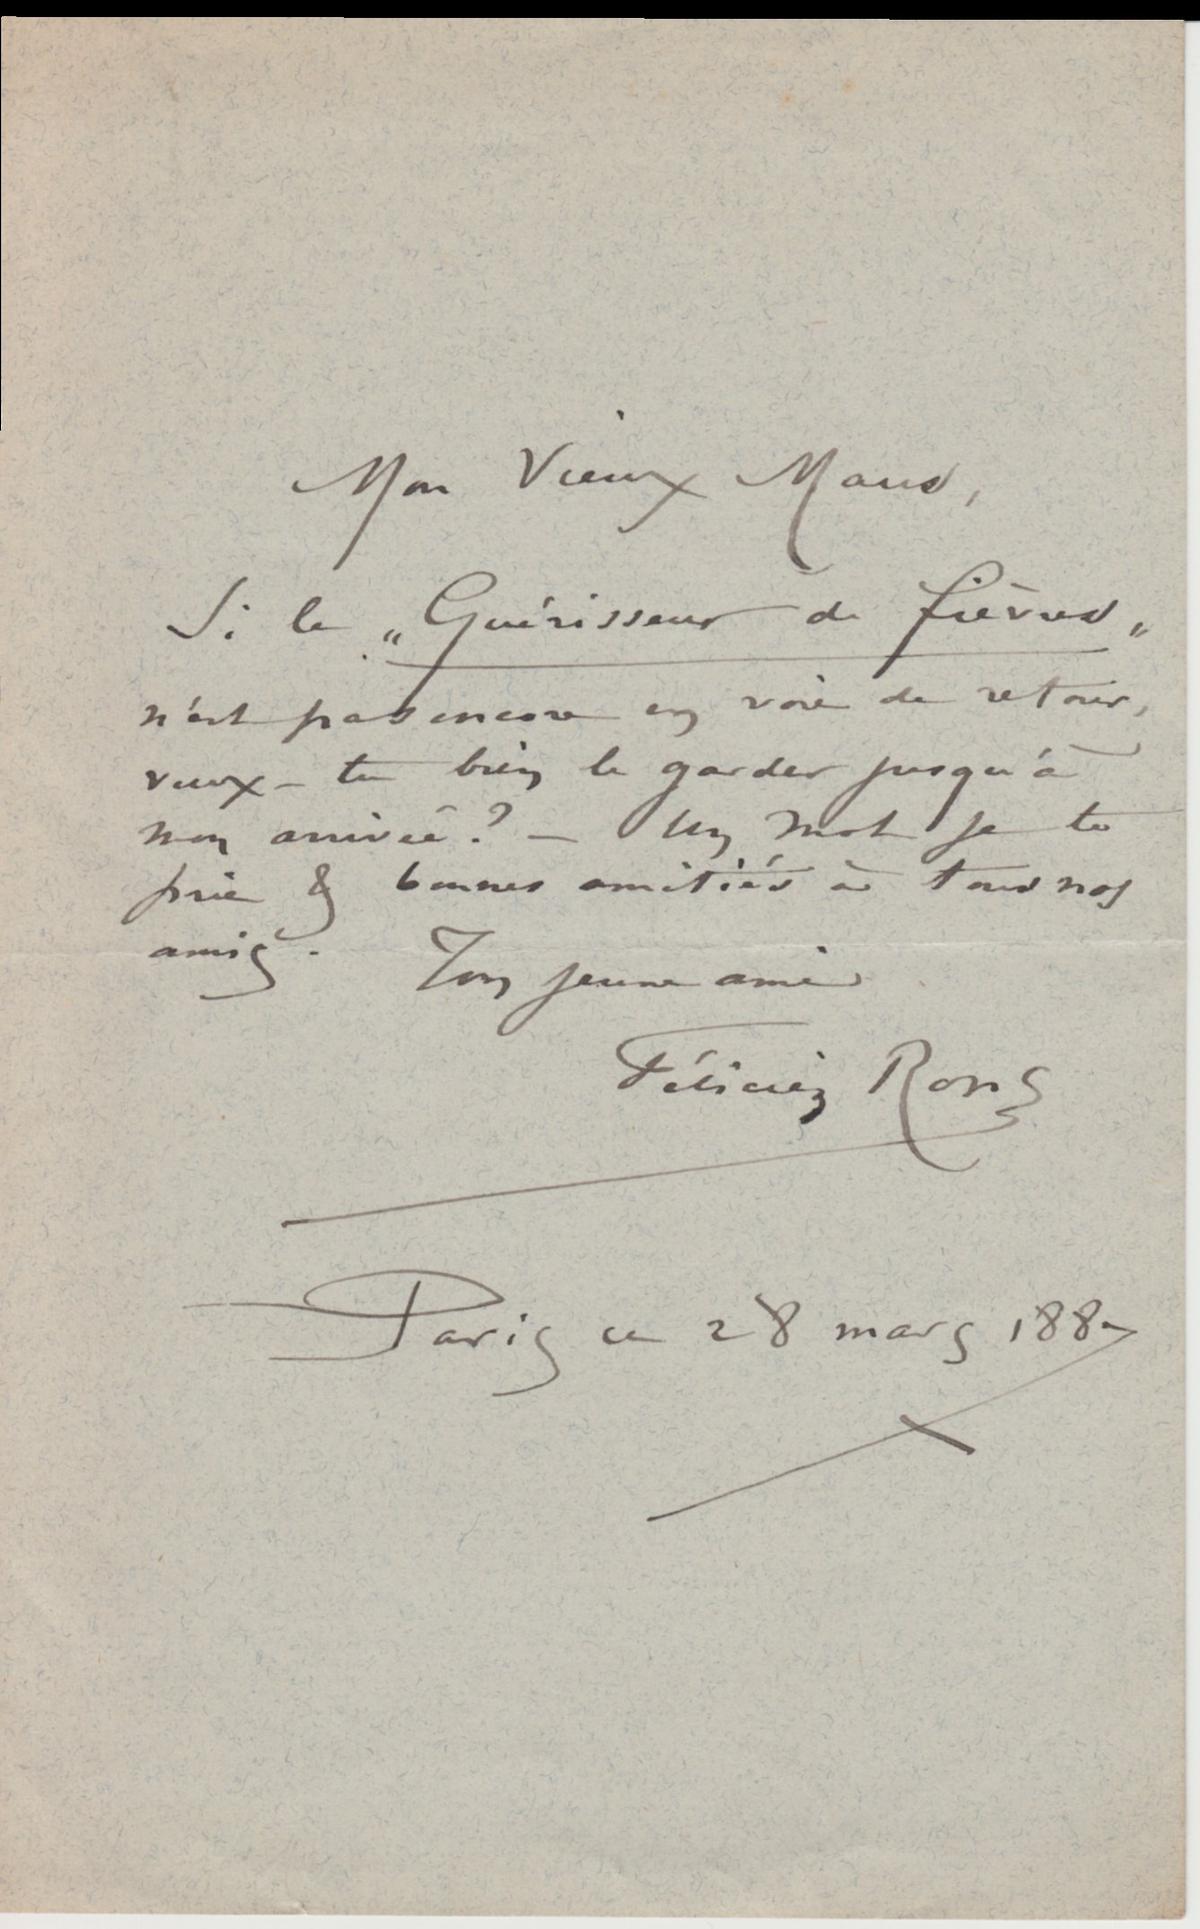 Mon Vieux Maus,
Si le „Guérisseur de fièvres„
n'est pas encore en voie de retour,
veux-tu bien le garder jusqu'à
mon arrivée ? – Un mot je te
prie & bonnes amitiés à tous nos
amis. Ton jeune ami
Félicien Rops
Paris ce 28 mars 1887